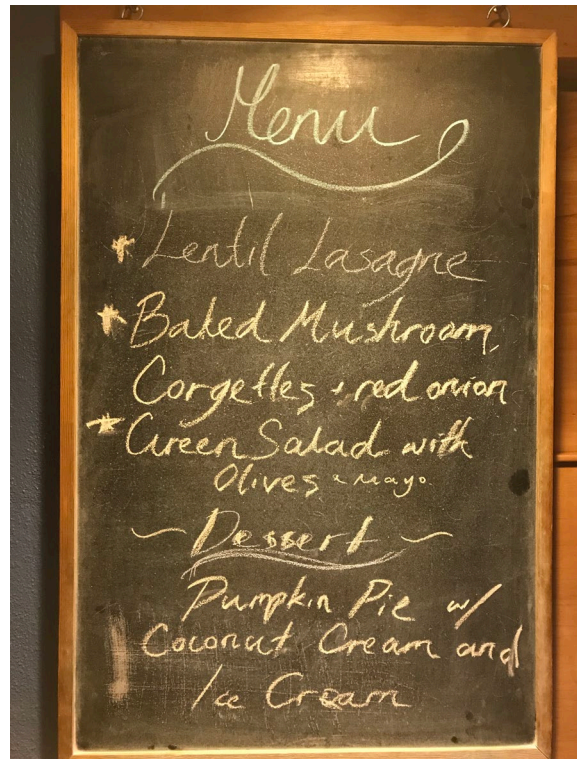 Menu
* Lentil Lasagne
* Baked Mushroom,
Corgettes + red onion
* Green Salad with
Olives & Mayo
~ Dessert ~
Pumpkin Pie w/
Coconut Cream and
Ice Cream